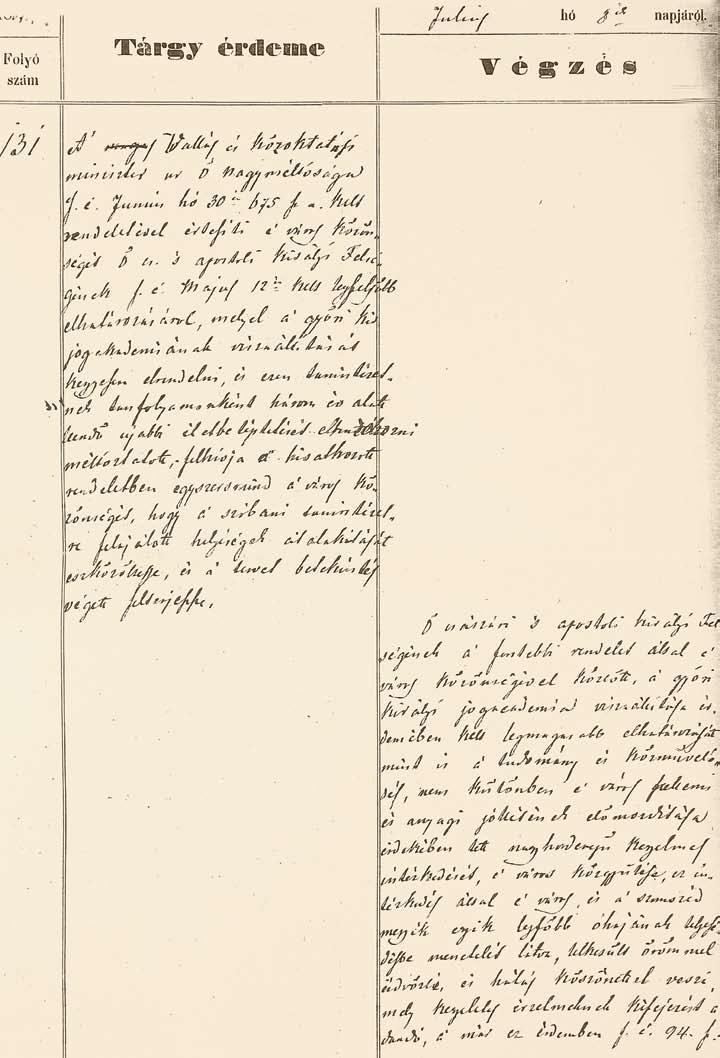 Julius hó 8ik napjáról.
Folyó szám
Tárgy érdeme
Végzés
131
A Vallás és Közoktatási
minister ur Ő nagyméltósága
f. é. Junius hó 30án 675 sz. a. kelt
rendeletével értesíti é város közön-
ségét Ő cs. 's apostoli királyi Felsé-
gének f. é. Május 12én kelt legfelsőbb
elhatározásáról, melyel á győri kir.
jogakademiának visszaállítását
kegyesen elrendelni, és ezen tanintézet-
nek tanfolyamonként három év alatt
leendő ujabbi életbe léptetését elhatározni
méltóztatott,- felhívja a hivatkozott
rendeletben egyszersmind á város kö-
zönségét, hogy á szóbani tanintézet-
re felajálott helyiségek átalakítását
eszközöltesse, és á tervet betekintés
végett felterjessze.
Ő császári 's apostoli királyi Fel
ségének á fentebbi rendelet által é
város közönségével közlött, á győri
királyi jogacademia visszaállítása ér-
demében kelt legmagasabb elhatározását
mint is á tudomány és közművelő-
dés, nem különben é város szellemi
és anyagi jólétének előmozdítása
érdekében tett nagyhorderejü kegyelmes
intézkedését, é város közgyülése, ez in-
tézkedés által é város, és á szomszéd
megyék egyik legfőbb óhajának teljese-
désbe menetelét látva, lelkesült örömmel
üdvözli, és hálás köszönettel veszi,
mely kegyeletes érzelmeinek kifejezést á
dandó, á már ez érdemben f. é. 94. sz.